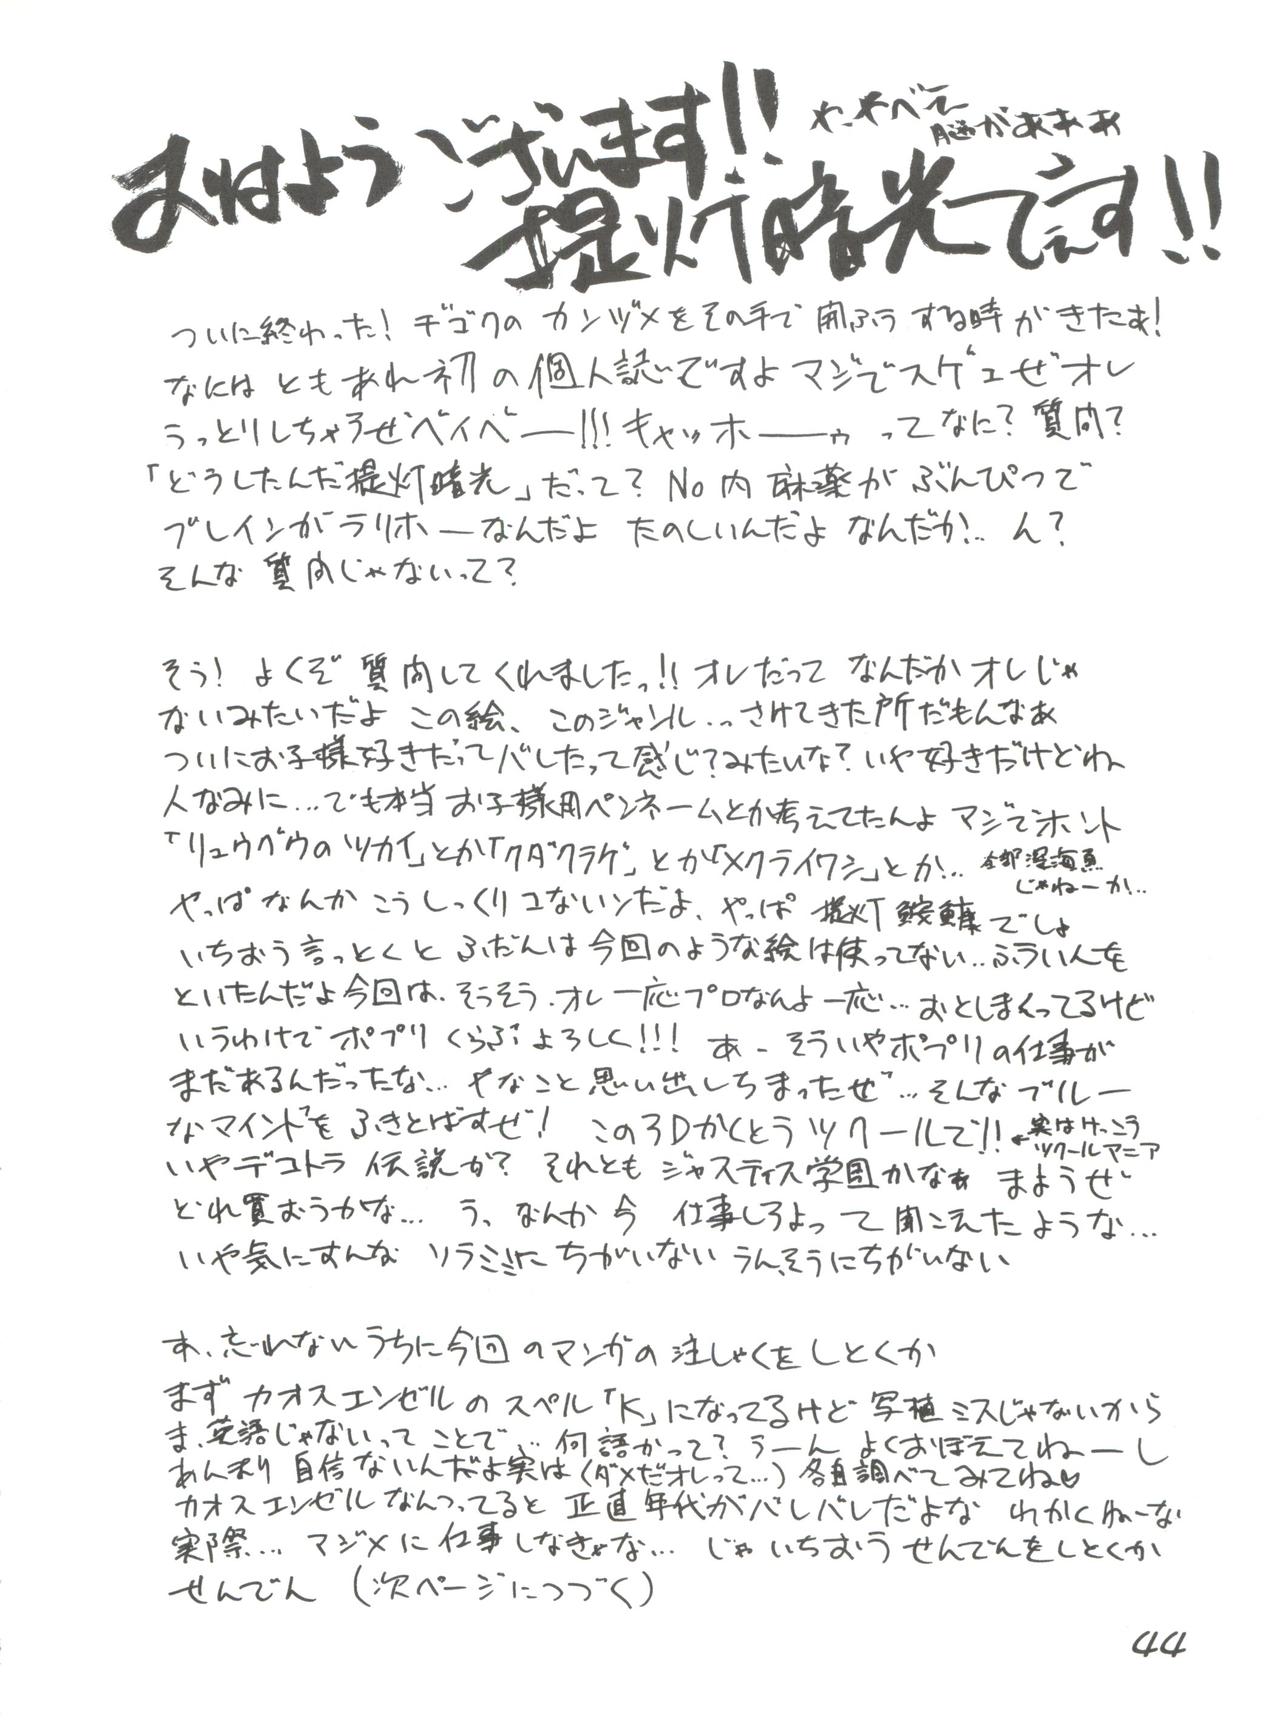 おはようございます!!
や、やべえ
脳があああ
提灯暗光でぇす!!
ついに終わった! ヂゴクの カンヅメをその手で 開ふうする時がきたぁ!
なにはともあれ初の個人誌ですよマジでスゲェぜオレ
うっとりしちゃうぜベイベー!!! キャッホーゥ ってなに? 質問?
「どうしたんだ提灯暗光」だって? No内麻薬がぶんぴつで
ブレインがラリホーなんだよ たのしいんだよ なんだか.. ん?
そんな質問じゃないって?
そう! よくぞ 質問してくれましたっ!! オレだって なんだかオレじゃ
ないみたいだよ この絵、このジャンル..さけてきた所だもんなぁ
ついにお子様好きだってバレたって感じ?みたいな? いや好きだけどね
人なみに...でも本当お子様用ペンネームとか考えてたんよ マジでホント
「リュウグウのツカイ」とか「クダクラゲ」とか「メクライワシ」とか..
全部深海魚
じゃねーか!..
やっぱなんかこうしっくりコないンだよ、やっぱ 提灯鮟鱇でしょ
いちおう言っとくと ふだんは今回のような絵は使ってない..ふういんを
といたんだよ今回は、そうそう、オレ一応プロなんよ一応... おとしまくってるけど
いうわけで ポプリくらぶよろしく!!! あ- そういやポプリの仕事が
まだあるんだったな... やなこと思い出しちまったぜ...そんなブルー
なマインドをふきとばすぜ! この3Dかくとうツクールで!!
←実はけっこう
ツクールマニア
いやデコトラ伝説か? それともジャスティス学園かなぁ まようぜ
どれ買おうかな... う、なんか今 仕事しろよって聞こえたような...
いや気にすんな ソラミミにちがいない うん、そうにちがいない
あ、忘れないうちに今回のマンガの注しゃくをしとくか
まず カオスエンゼルのスペル「K」になってるけど 写植ミスじゃないから
ま、英語じゃないってことで... 何語かって? うーん よくおぼえてねーし
あんまり自信ないんだよ実は(ダメだオレって...)各自調べてみてね♡
カオスエンゼルなんつってると 正直年代がバレバレだよな わかくねーな
実際... マジメに仕事しなきゃな... じゃ いちおう せんでんをしとくか
せんでん (次ページにつづく)
44